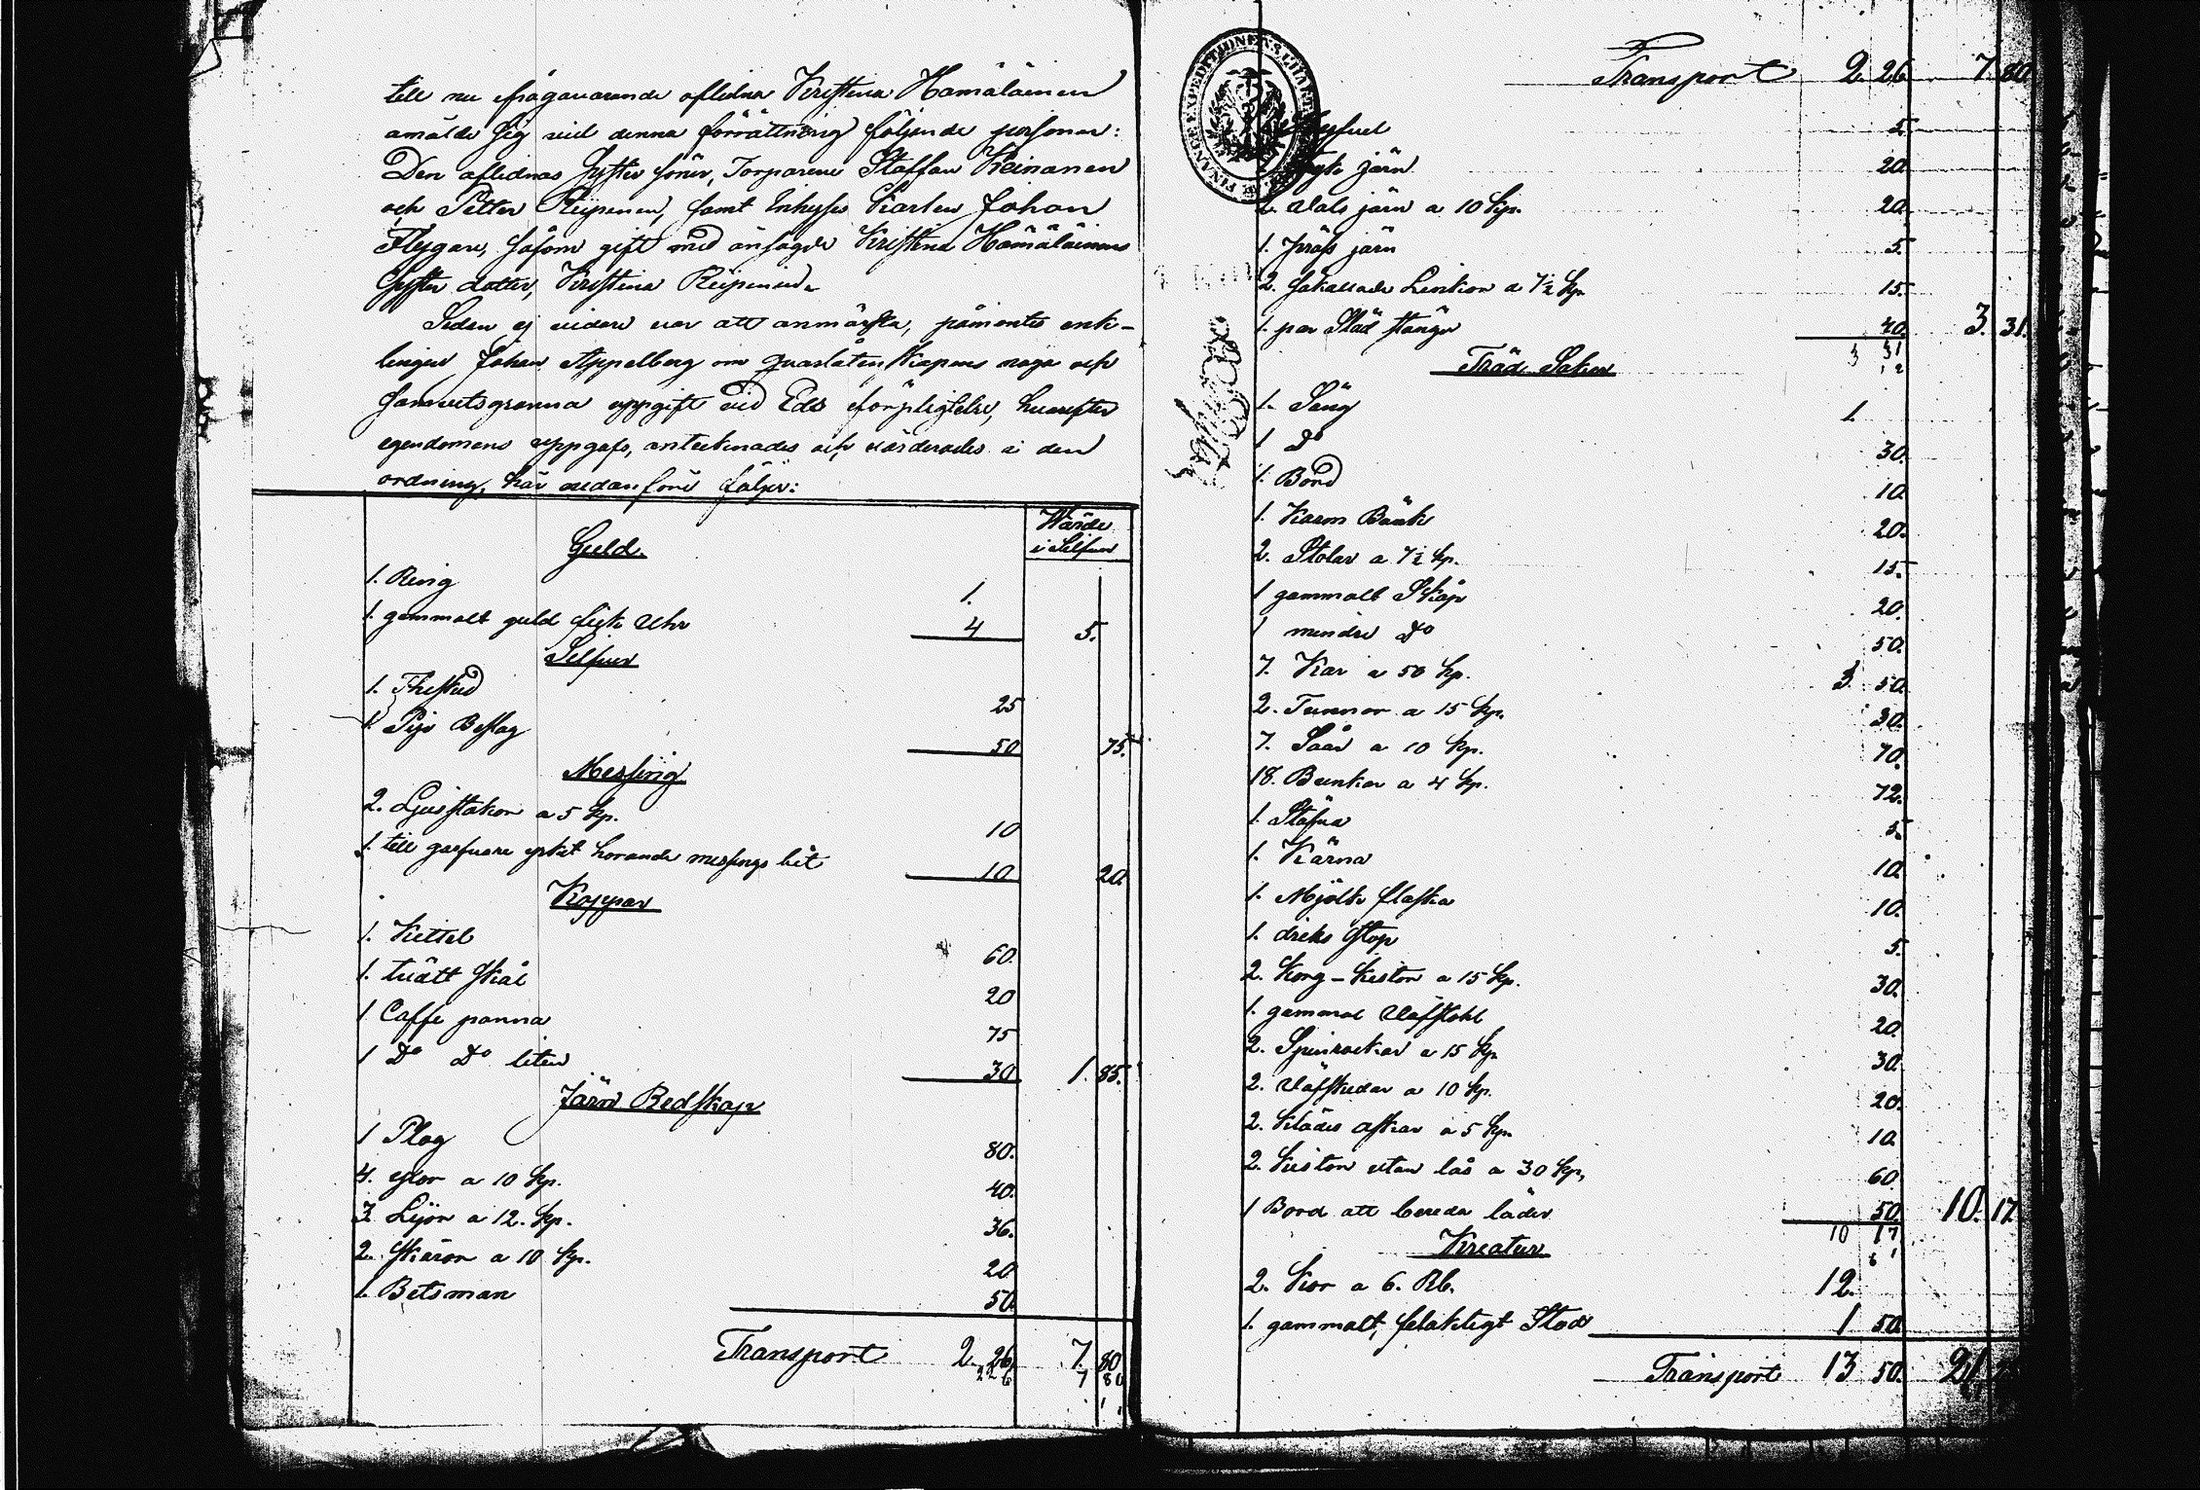 till nu ifrågavarande aflidna Kristina Hämäläinen
amälde sig vid denna förrättning följande personer:
Den aflidnas Syster söner, Torparene Staffan Keinanen
och Petter Reipenen, samt Inhyses Karlen Johan
Flygare, såsom gift med ansagde Kristina Hämäläinens
Syster dotter, Kristina Reipenen.
Sedan ej vidare var att anmärka, påmintes enk-
lingen Johan Appelberg om quarlåtenskapens noga och
samvetsgranna uppgift vid Eds förpligtelse, hvarefter
egendomens uppgafs, antecknades och värderades i den
ordning, här nedanföre följer:
Wärde
i Silfver
Guld.
1. Ring 1.
1. gammalt guld fick Uhr 4 5.
Silfver
1. Thesked 25
1. Pip Beslag 50 75.
Messing
2. Ljusstakar a 5 kp. 10
1. till garfvare yrket hörande messings bit 10 20.
Koppar
1. Kittel 60.
1. tvätt skål 20
1 Caffe panna 75
1 Do Do liten 30 1. 85.
Järn Redskap
1 Plog 80.
4. yxor a 10 kp. 40.
3. Lijor a 12. kp. 36.
2. skäror a 10 kp. 20
1. Betsman 50.
Transport 2. 26. 7. 80
2 26 7 80
Transport 2 26 7. 80.
FINANCE EXPEDITIONENS CHART
5.
järn 20.
järn a 10 kp. 20.
1. järn 5.
2. Linkor a 7½ kp 15.
1. par Städ stänger 40. 3. 31.
3 31
Träd Saker
1. Säng 1.
1 Do 30.
1. Bord 10.
1. Karm Bänk 20.
2. Stolar a 7½ kp. 15.
1 gammalt Skåp 20.
1 mindre Do 50.
7. Kar a 50 kp. 3. 50.
2. Tunnor a 15 kp. 30.
7. Såar a 10 kp. 70.
18. Bunkar a 4 kp. 72.
1. Stäfva 5.
1. Kärna 10.
1. Mjölk flaska 10.
1. dricks stop 5.
2. Korg-kistor a 15 kp. 30.
1. gammal Väfstohl 20.
2. Spinrockar a 15 kp 30.
2. Väfskedar a 10 kp. 20.
2. Klädes askar a 5 kp. 10.
2. Kistor utan lås a 30 kp, 60
1 Bord att bereda läder 50. 10. 17.
10 17
Kreatur
2. Kor a 6. Rb. 12.
1. gammalt, felaktigt Stod 1 50.
Transport 13 50. 21.